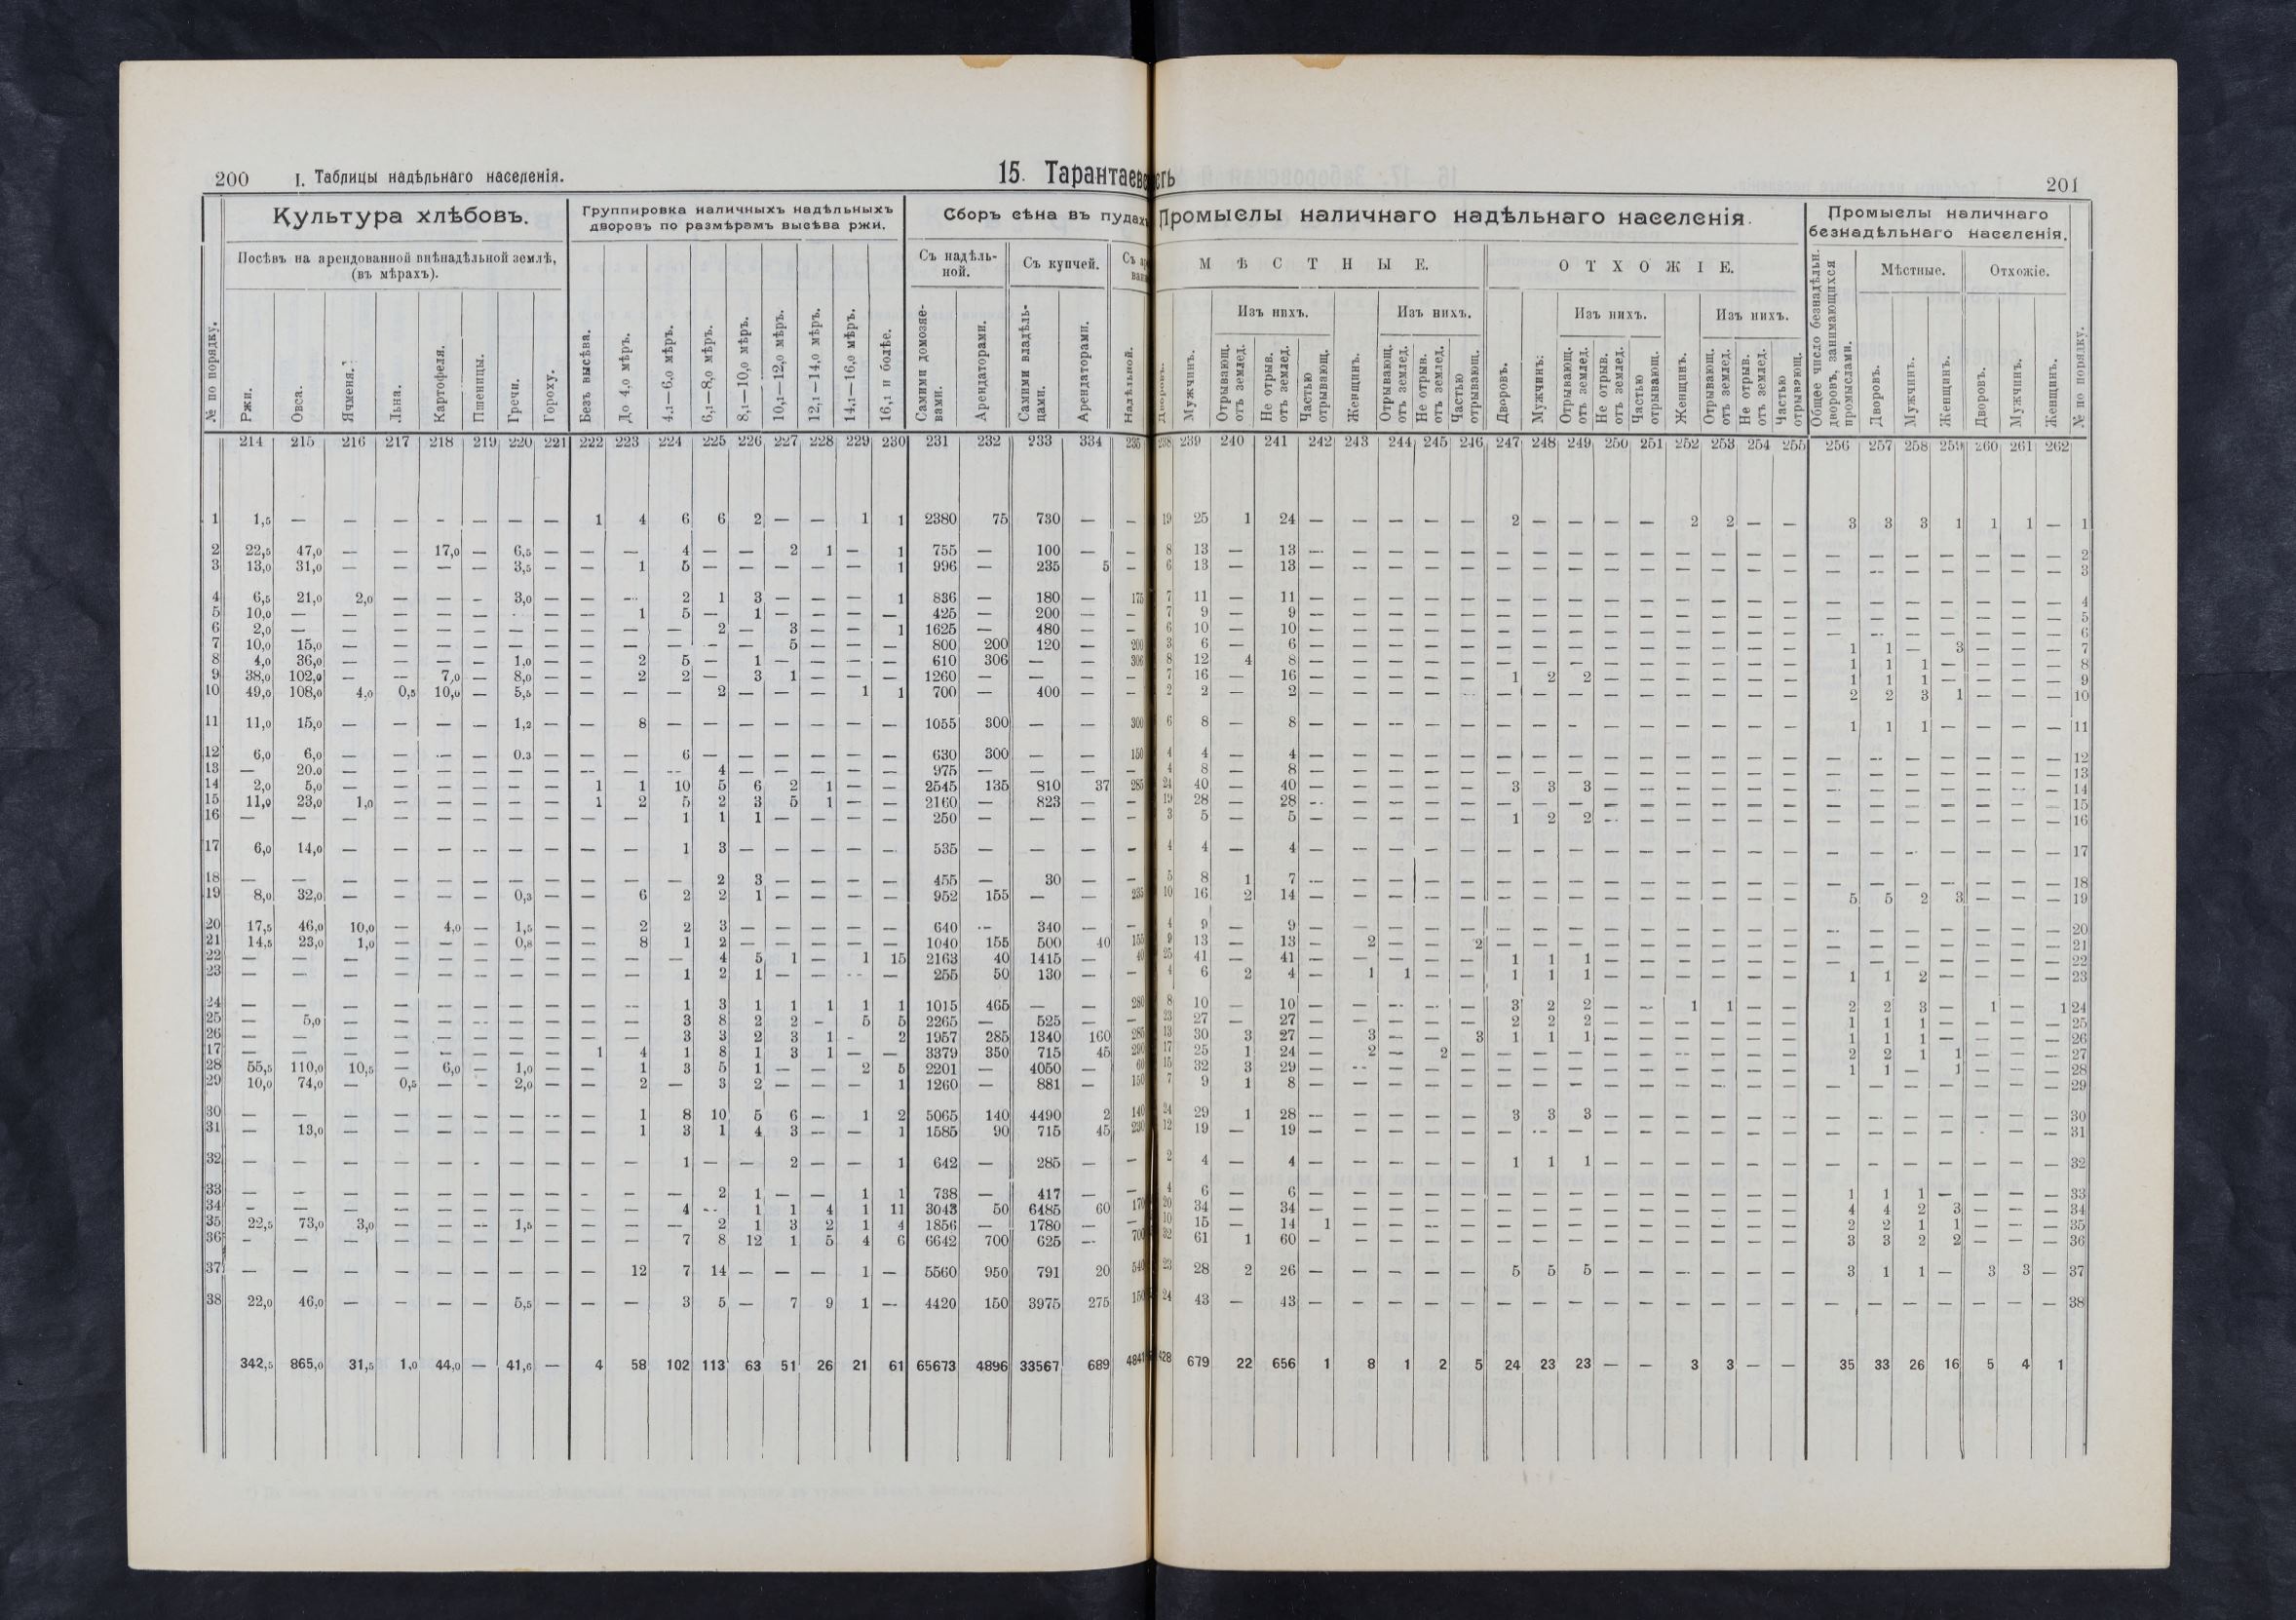 200 I. Таблицы надѣльнаго населенія.
15. Тарантаев
сть
201
Культура хлѣбовъ.
Посѣвъ на арендованной внѣнадѣльной землѣ,
(въ мѣрахъ).
Группировка наличныхъ надѣльныхъ
дворовъ по размѣрамъ высѣва ржи.
Сборъ сѣна въ пудах
Съ надѣль-
ной.
Съ купчей.
Промыслы наличнаго надѣльнаго населенія.
МѢСТНЫЕ.
ОТХОЖІЕ.
Изъ нихъ. Изъ нихъ. Изъ нихъ. Изъ нихъ.
Промыслы наличнаго
безнадѣльнаго населенія.
Мѣстные. Отхожіе.
№ по порядку. Ржи. Овса. Ячменя. Льна. Картофеля. Пшеницы. Гречи. Гороху.
Безъ высѣва. До 4,0 мѣръ. 4,1—6,0 мѣръ. 6,1—8,0 мѣръ. 8,1—10,0 мѣр. 10,1—12,0 мѣръ. 12,1—14,0 мѣръ. 14,1—16,0 мѣръ. 16,1 и болѣе.
Сами домозяе-
вами. Арендаторами. Сами владѣль-
цами. Арендаторами. Надѣльной.
Дворовъ. Мужчинъ. Отрывающ.
отъ землед. Не отрыв.
отъ землед. Частью
отрывающ. Женщинъ. Отрывающ.
отъ землед. Не отрыв.
отъ землед. Частью
отрывающ.
Дворовъ. Мужчинъ: Отрывающ.
отъ землед. Не отрыв.
отъ землед. Частью
отрывающ. Женщинъ. Отрывающ.
отъ землед. Не отрыв.
отъ землед. Частью
отрывающ.
Общее число безнадѣльн.
дворовъ, занимающихся
промыслами. Дворовъ. Мужчинъ. Женщинъ. Дворовъ. Мужчинъ. Женщинъ. № по порядку.
214 215 216 217 218 219 220 221 222 223 224 225 226 227 228 229 230 231 232 233 334 235
238 239 240 241 242 243 244 245 246 247 248 249 250 251 252 253 254 255 256 257 258 259 260 261 262
1 1,5 — — — - — — — 1 4 6 6 2 — — 1 1 2380 75 730 — —
2 22,5 47,0 — — 17,0 — 6,5 — — — 4 — — 2 1 — 1 755 — 100 — —
3 13,0 31,0 — — — — 3,5 — — 1 5 — — — — — 1 996 — 235 5 —
4 6,5 21,0 2,0 — — - 3,0 — — — 2 1 3 — — — 1 836 — 180 — 175
5 10,0 — — — — — - — — 1 5 — 1 — — — — 425 — 200 — —
6 2,0 — — — — — — — — — — 2 — 3 — — 1 1625 — 480 — —
7 10,0 15,0 — — — — — — — — — - — 5 — — — 800 200 120 — 200
8 4,0 36,0 — — — — 1,0 — — 2 5 — 1 — — — — 610 306 — — 306
9 38,0 102,0 — — 7,0 — 8,0 — — 2 2 — 3 1 — — — 1260 — — — —
10 49,5 108,0 4,0 0,5 10,0 — 5,5 — — — — 2 — — — 1 1 700 — 400 — —
11 11,0 15,0 — — — — 1,2 — — 8 — — — — — — — 1055 300 — — 300
12 6,0 6,0 — — — — 0.3 — — — 6 — — — — — — 630 300 — — 150
13 — 20.0 — — — — — — — — — 4 — — — — — 975 — — — —
14 2,0 5,0 — — — — — — 1 1 10 5 6 2 1 — — 2545 135 810 37 285
15 11,0 23,0 1,0 — — — — — 1 2 5 2 3 5 1 — — 2160 — 823 — —
16 — — — — — — — — — — 1 1 1 — — — — 250 — — — —
17 6,0 14,0 — — — — — — — — 1 3 — — — — — 535 — — — —
18 — — — — — — — — — — — 2 3 — — — — 455 — 30 — —
19 8,0 32,0 — — — — 0,3 — — 6 2 2 1 — — — — 952 155 — — 235
20 17,5 46,0 10,0 — 4,0 — 1,5 — — 2 2 3 — — — — — 640 — 340 — —
21 14,5 23,0 1,0 — — — 0,8 — — 8 1 2 — — — — — 1040 155 500 40 155
22 — — — — — — — — — — — 4 5 1 — 1 15 2163 40 1415 — 40
23 — — — — — — — — — — 1 2 1 — — — — 255 50 130 — —
24 — — — — — — — — — — 1 3 1 1 1 1 1 1015 465 — — 280
25 — 5,0 — — — — — — — — 3 8 2 2 - 5 5 2265 — 525 — —
26 — — — — — — — — — — 3 3 2 3 1 - 2 1957 285 1340 160 285
17 — — — — — — — — 1 4 1 8 1 3 1 — — 3379 350 715 45 290
28 55,5 110,0 10,5 — 6,0 — 1,0 — — 1 3 5 1 — — 2 5 2201 — 4050 — 60
29 10,0 74,0 — 0,5 — — 2,0 — — 2 — 3 2 — — — 1 1260 — 881 — 150
30 — — — — — — — — — 1 8 10 5 6 — 1 2 5065 140 4490 2 140
31 — 13,0 — — — — — — — 1 3 1 4 3 — — 1 1585 90 715 45 230
32 — — — — — — — — — — 1 — — 2 — — 1 642 — 285 — —
33 — — — — — — — — — — — 2 1 — — 1 1 738 — 417 — —
34 — — — — — — — — — — 4 — 1 1 4 1 11 3043 50 6485 60 170
35 22,5 73,0 3,0 — — — 1,5 — — — — 2 1 3 2 1 4 1856 — 1780 — —
36 — — — — — — — — — — 7 8 12 1 5 4 6 6642 700 625 — 700
37 — — — — — — — — — 12 7 14 — — — 1 — 5560 950 791 20 540
38 22,0 46,0 — — — — 5,5 — — — 3 5 — 7 9 1 — 4420 150 3975 275 150
342,5 865,0 31,5 1,0 44,0 — 41,6 — 4 58 102 113 63 51 26 21 61 65673 4896 33567 689 4841
19 25 1 24 — — — — — 2 — — — — 2 2 — — 3 3 3 1 1 1 — 1
8 13 — 13 — — — — — — — — — — — — — — — — — — — — — 2
6 13 — 13 — — — — — — — — — — — — — — — — — — — — — 3
7 11 — 11 — — — — — — — — — — — — — — — — — — — — — 4
7 9 — 9 — — — — — — — — — — — — — — — — — — — — — 5
6 10 — 10 — — — — — — — — — — — — — — — — — — — — — 6
3 6 — 6 — — — — — — — — — — — — — — 1 1 — 3 — — — 7
8 12 4 8 — — — — — — — — — — — — — — 1 1 1 — — — — 8
7 16 — 16 — — — — — 1 2 2 — — — — — — 1 1 1 — — — — 9
2 2 — 2 — — — — — — — — — — — — — — 2 2 3 1 — — — 10
6 8 — 8 — — — — — — — — — — — — — — 1 1 1 — — — — 11
4 4 — 4 — — — — — — — — — — — — — — — — — — — — — 12
4 8 — 8 — — — — — — — — — — — — — — — — — — — — — 13
24 40 — 40 — — — — — 3 3 3 — — — — — — — — — — — — — 14
19 28 — 28 — — — — — — — — — — — — — — — — — — — — — 15
3 5 — 5 — — — — — 1 2 2 — — — — — — — — — — — — — 16
4 4 — 4 — — — — — — — — — — — — — — — — — — — — — 17
5 8 1 7 — — — — — — — — — — — — — — — — — — — — — 18
10 16 2 14 — — — — — — — — — — — — — — 5 5 2 3 — — — 19
4 9 — 9 — — — — — — — — — — — — — — — — — — — — — 20
9 13 — 13 — 2 — — 2 — — — — — — — — — — — — — — — — 21
25 41 — 41 — — — — — 1 1 1 — — — — — — — — — — — — — 22
4 6 2 4 — 1 1 — — 1 1 1 — — — — — — 1 1 2 — — — — 23
8 10 — 10 — — — — — 3 2 2 — — 1 1 — — 2 2 3 — 1 — 1 24
23 27 — 27 — — — — — 2 2 2 — — — — — — 1 1 1 — — — — 25
13 30 3 27 — 3 — — 3 1 1 1 — — — — — — 1 1 1 — — — — 26
17 25 1 24 — 2 — 2 — — — — — — — — — — 2 2 1 1 — — — 27
15 32 3 29 — — — — — — — — — — — — — — 1 1 — 1 — — — 28
7 9 1 8 — — — — — — — — — — — — — — — — — — — — — 29
24 29 1 28 — — — — — 3 3 3 — — — — — — — — — — — — — 30
12 19 — 19 — — — — — — — — — — — — — — — — — — — — — 31
2 4 — 4 — — — — — 1 1 1 — — — — — — — — — — — — — 32
4 6 — 6 — — — — — — — — — — — — — — 1 1 1 — — — — 33
20 34 — 34 — — — — — — — — — — — — — — 4 4 2 3 — — — 34
10 15 — 14 1 — — — — — — — — — — — — — 2 2 1 1 — — — 35
32 61 1 60 — — — — — — — — — — — — — — 3 3 2 2 — — — 36
23 28 2 26 — — — — — 5 5 5 — — — — — — 3 1 1 — 3 3 — 37
24 43 — 43 — — — — — — — — — — — — — — — — — — — — — 38
428 679 22 656 1 8 1 2 5 24 23 23 — — 3 3 — — 35 33 26 16 5 4 1